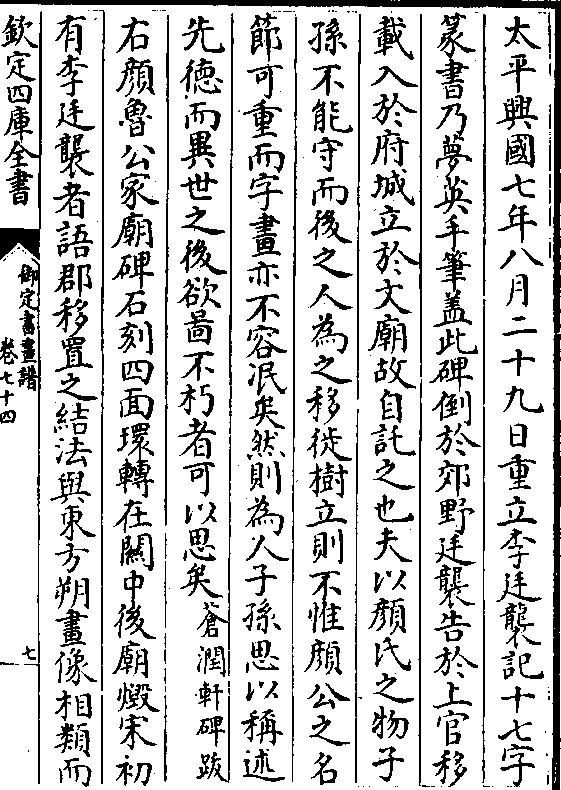 太平興國七年八月二十九日重立李廷襲記十七字
篆書乃夢英手筆盖此碑倒於郊野廷襲告於上官移
載入於府城立於文廟故自託之也夫以顔氏之物子
孫不能守而後之人為之移徙樹立則不惟顔公之名
節可重而字畫亦不容泯矣然則為人子孫思以稱述
先徳而異世之後欲圖不朽者可以思矣 蒼潤軒碑跋
右顔魯公家廟碑石刻四面環轉在關中後廟燬宋初
有李廷襲者語郡移置之結法與東方朔畫像相類而
欽定四庫全書
御定書畫譜
卷七十四
七